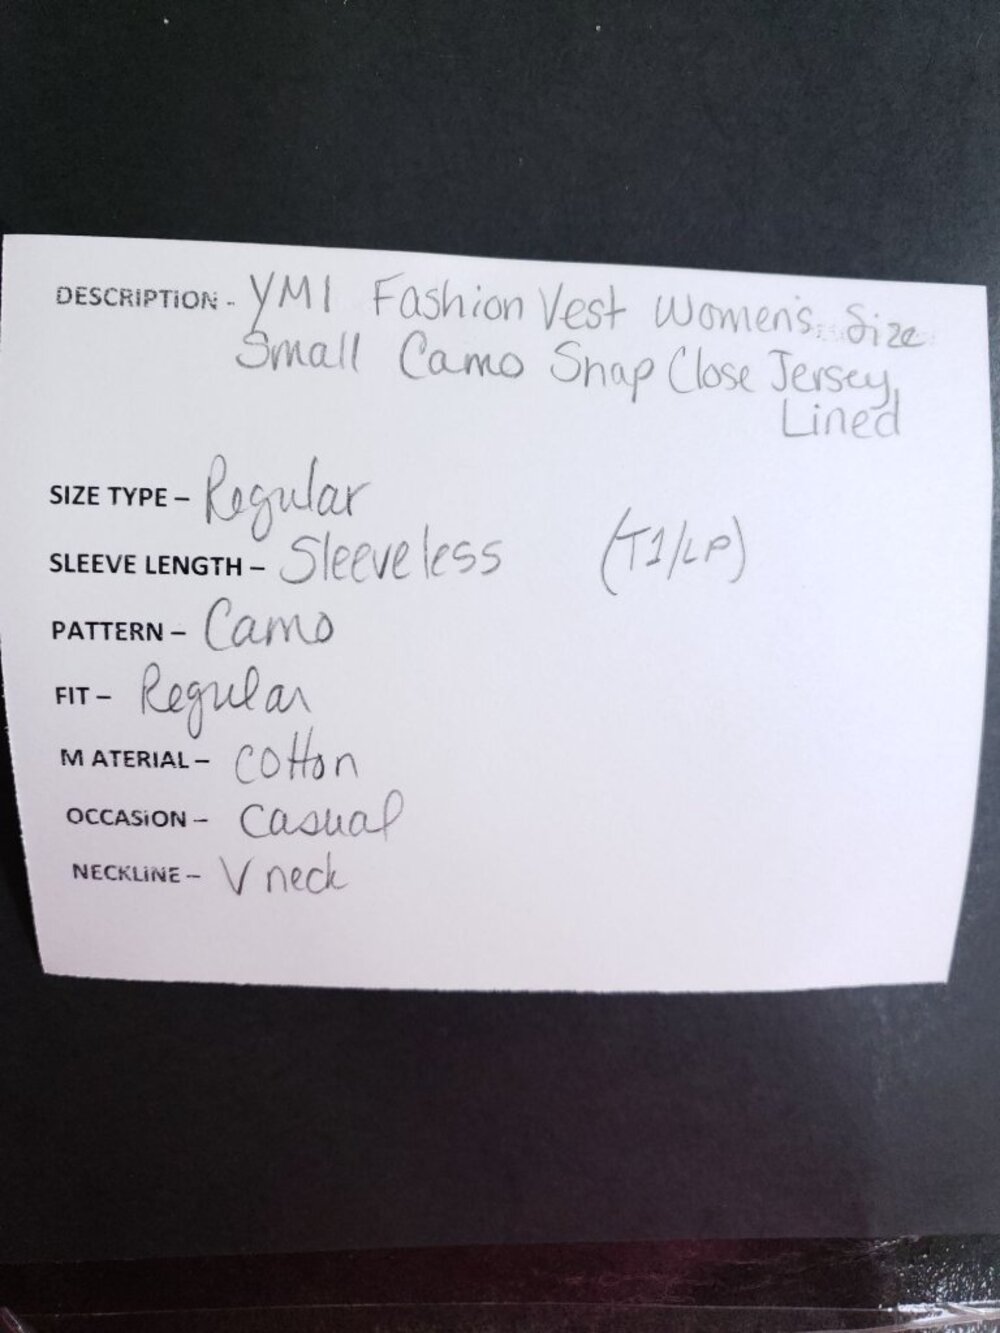 DESCRIPTION - YMI Fashion Vest Women's Size
Small Camo Snap Close Jersey
Lined
SIZE TYPE – Regular
SLEEVE LENGTH – Sleeveless (T1/LP)
PATTERN – Camo
FIT – Regular
M ATERIAL – cotton
OCCASiON – casual
NECKLiNE – V neck